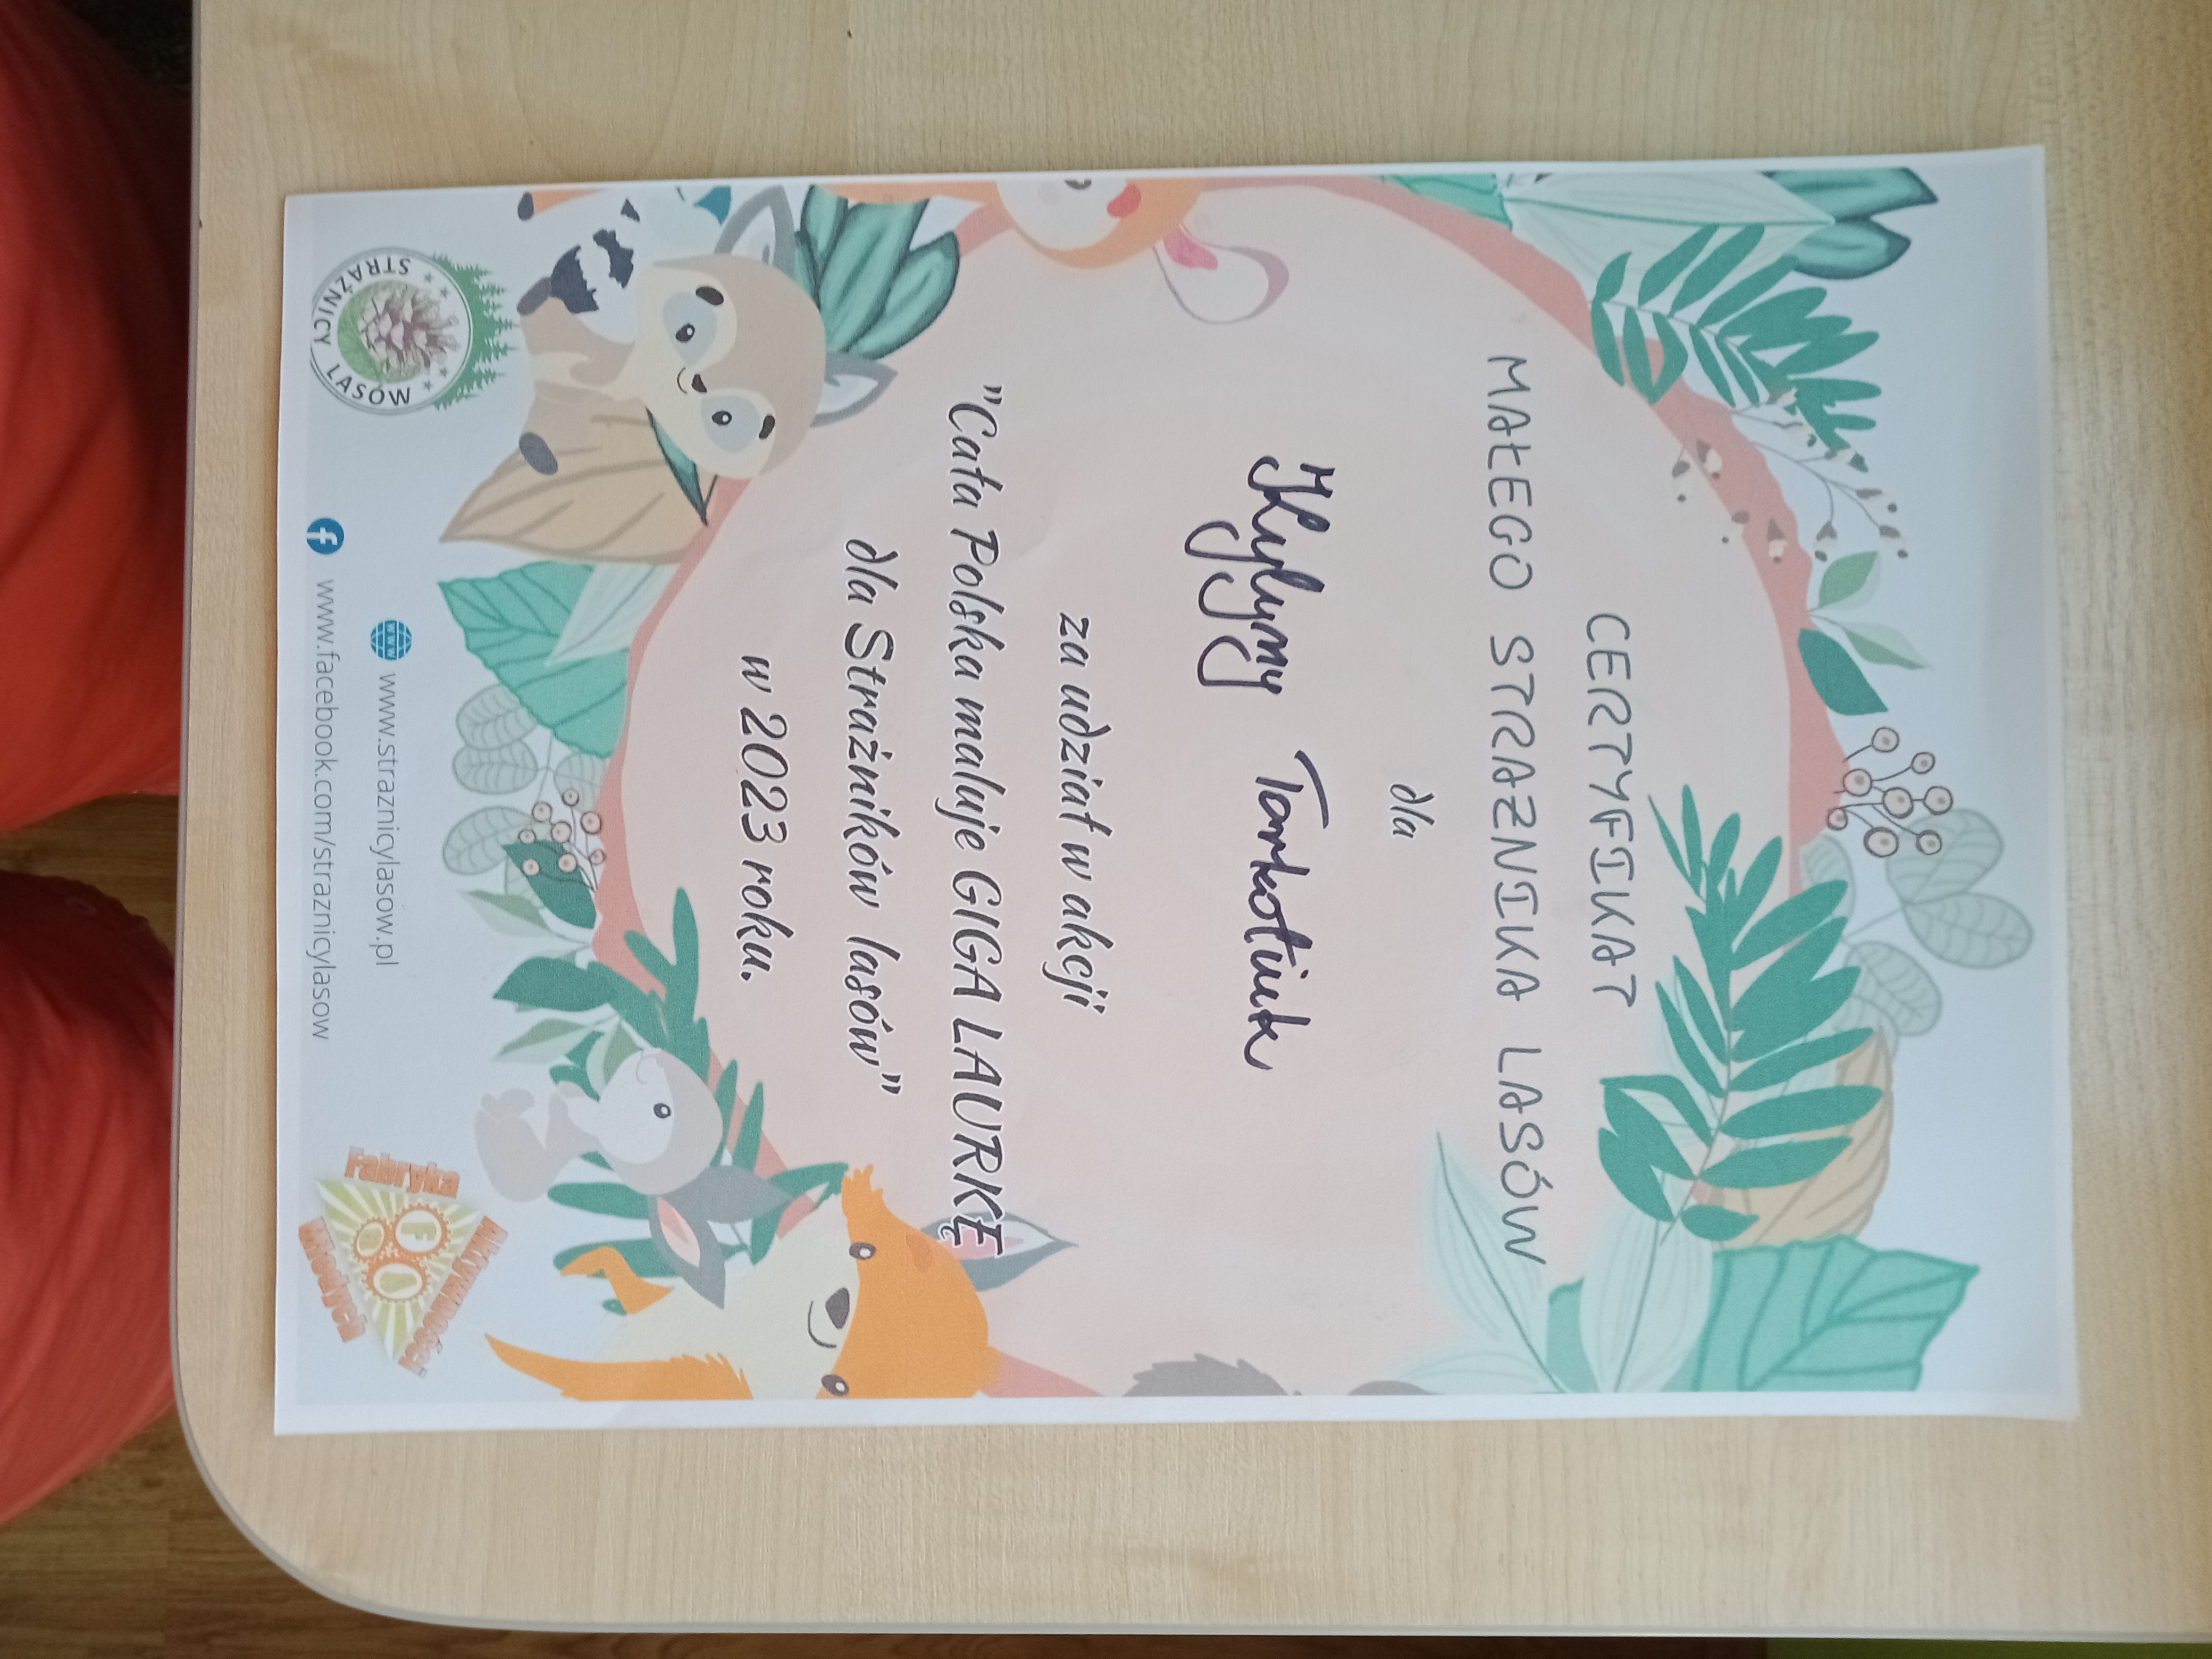 CERTYFIKAT
MAŁEGO STRAŻNIKA LASÓW
dla
Kylyny Tarkotiuk
za udział w akcji
"Cała Polska maluje GIGA LAURKĘ
dla Strażników lasów"
w 2023 roku.
STRAŻNICY LASÓW
www.straznicylasow.pl
www.facebook.com/straznicylasow
Fabryka
Aktywności
Młodych